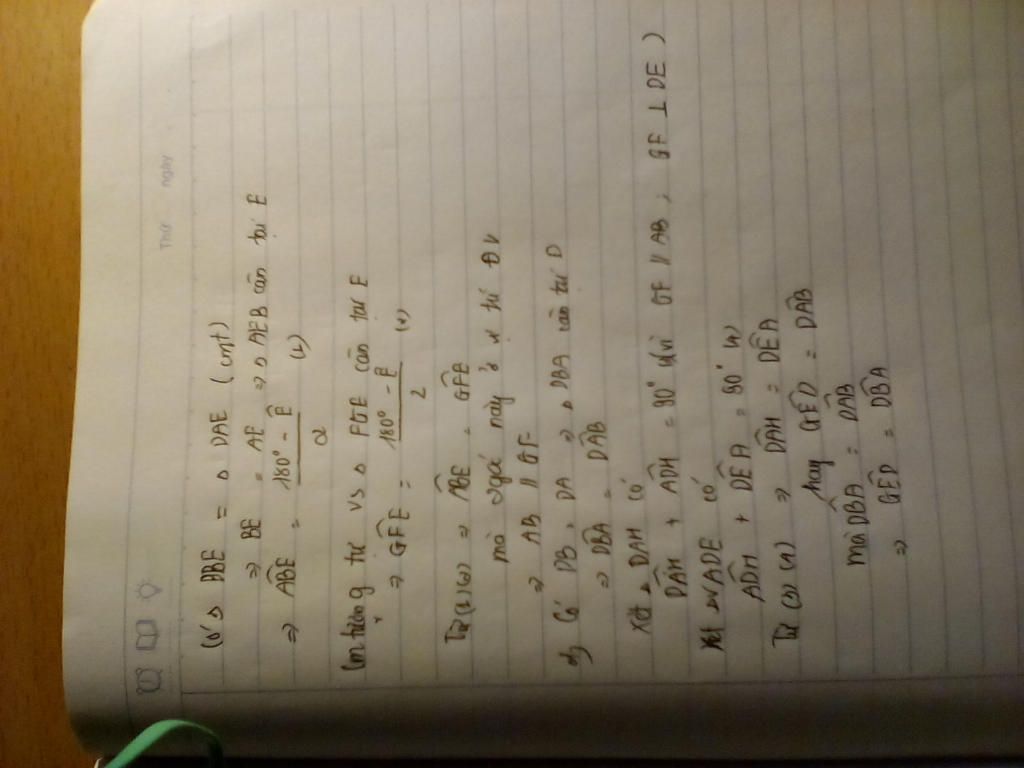 Thứ ngày
Có Δ DBE = Δ DAE (cmt)
⇒ BE = AE ⇒ Δ AEB cân tại E
⇒ ABE = 180° - E / 2
Cm tương tự vs Δ FGE cân tại E
⇒ GFE = 180° - E / 2
Từ (1)(2) ⇒ ABE = GFE
mà 2 góc này ở vị trí ĐV
⇒ AB // GF
Có DB = DA ⇒ Δ DBA cân tại D
⇒ DBA = DAB
Xét Δ DAH có
DAH + ADH = 90° (vì GF // AB ; GF ⊥ DE)
Xét Δv ADE có
ADH + DEA = 90° (4)
Từ (3) (4) ⇒ DAH = DEA
hay GED = DAB
mà DBA = DAB
⇒ GED = DBA